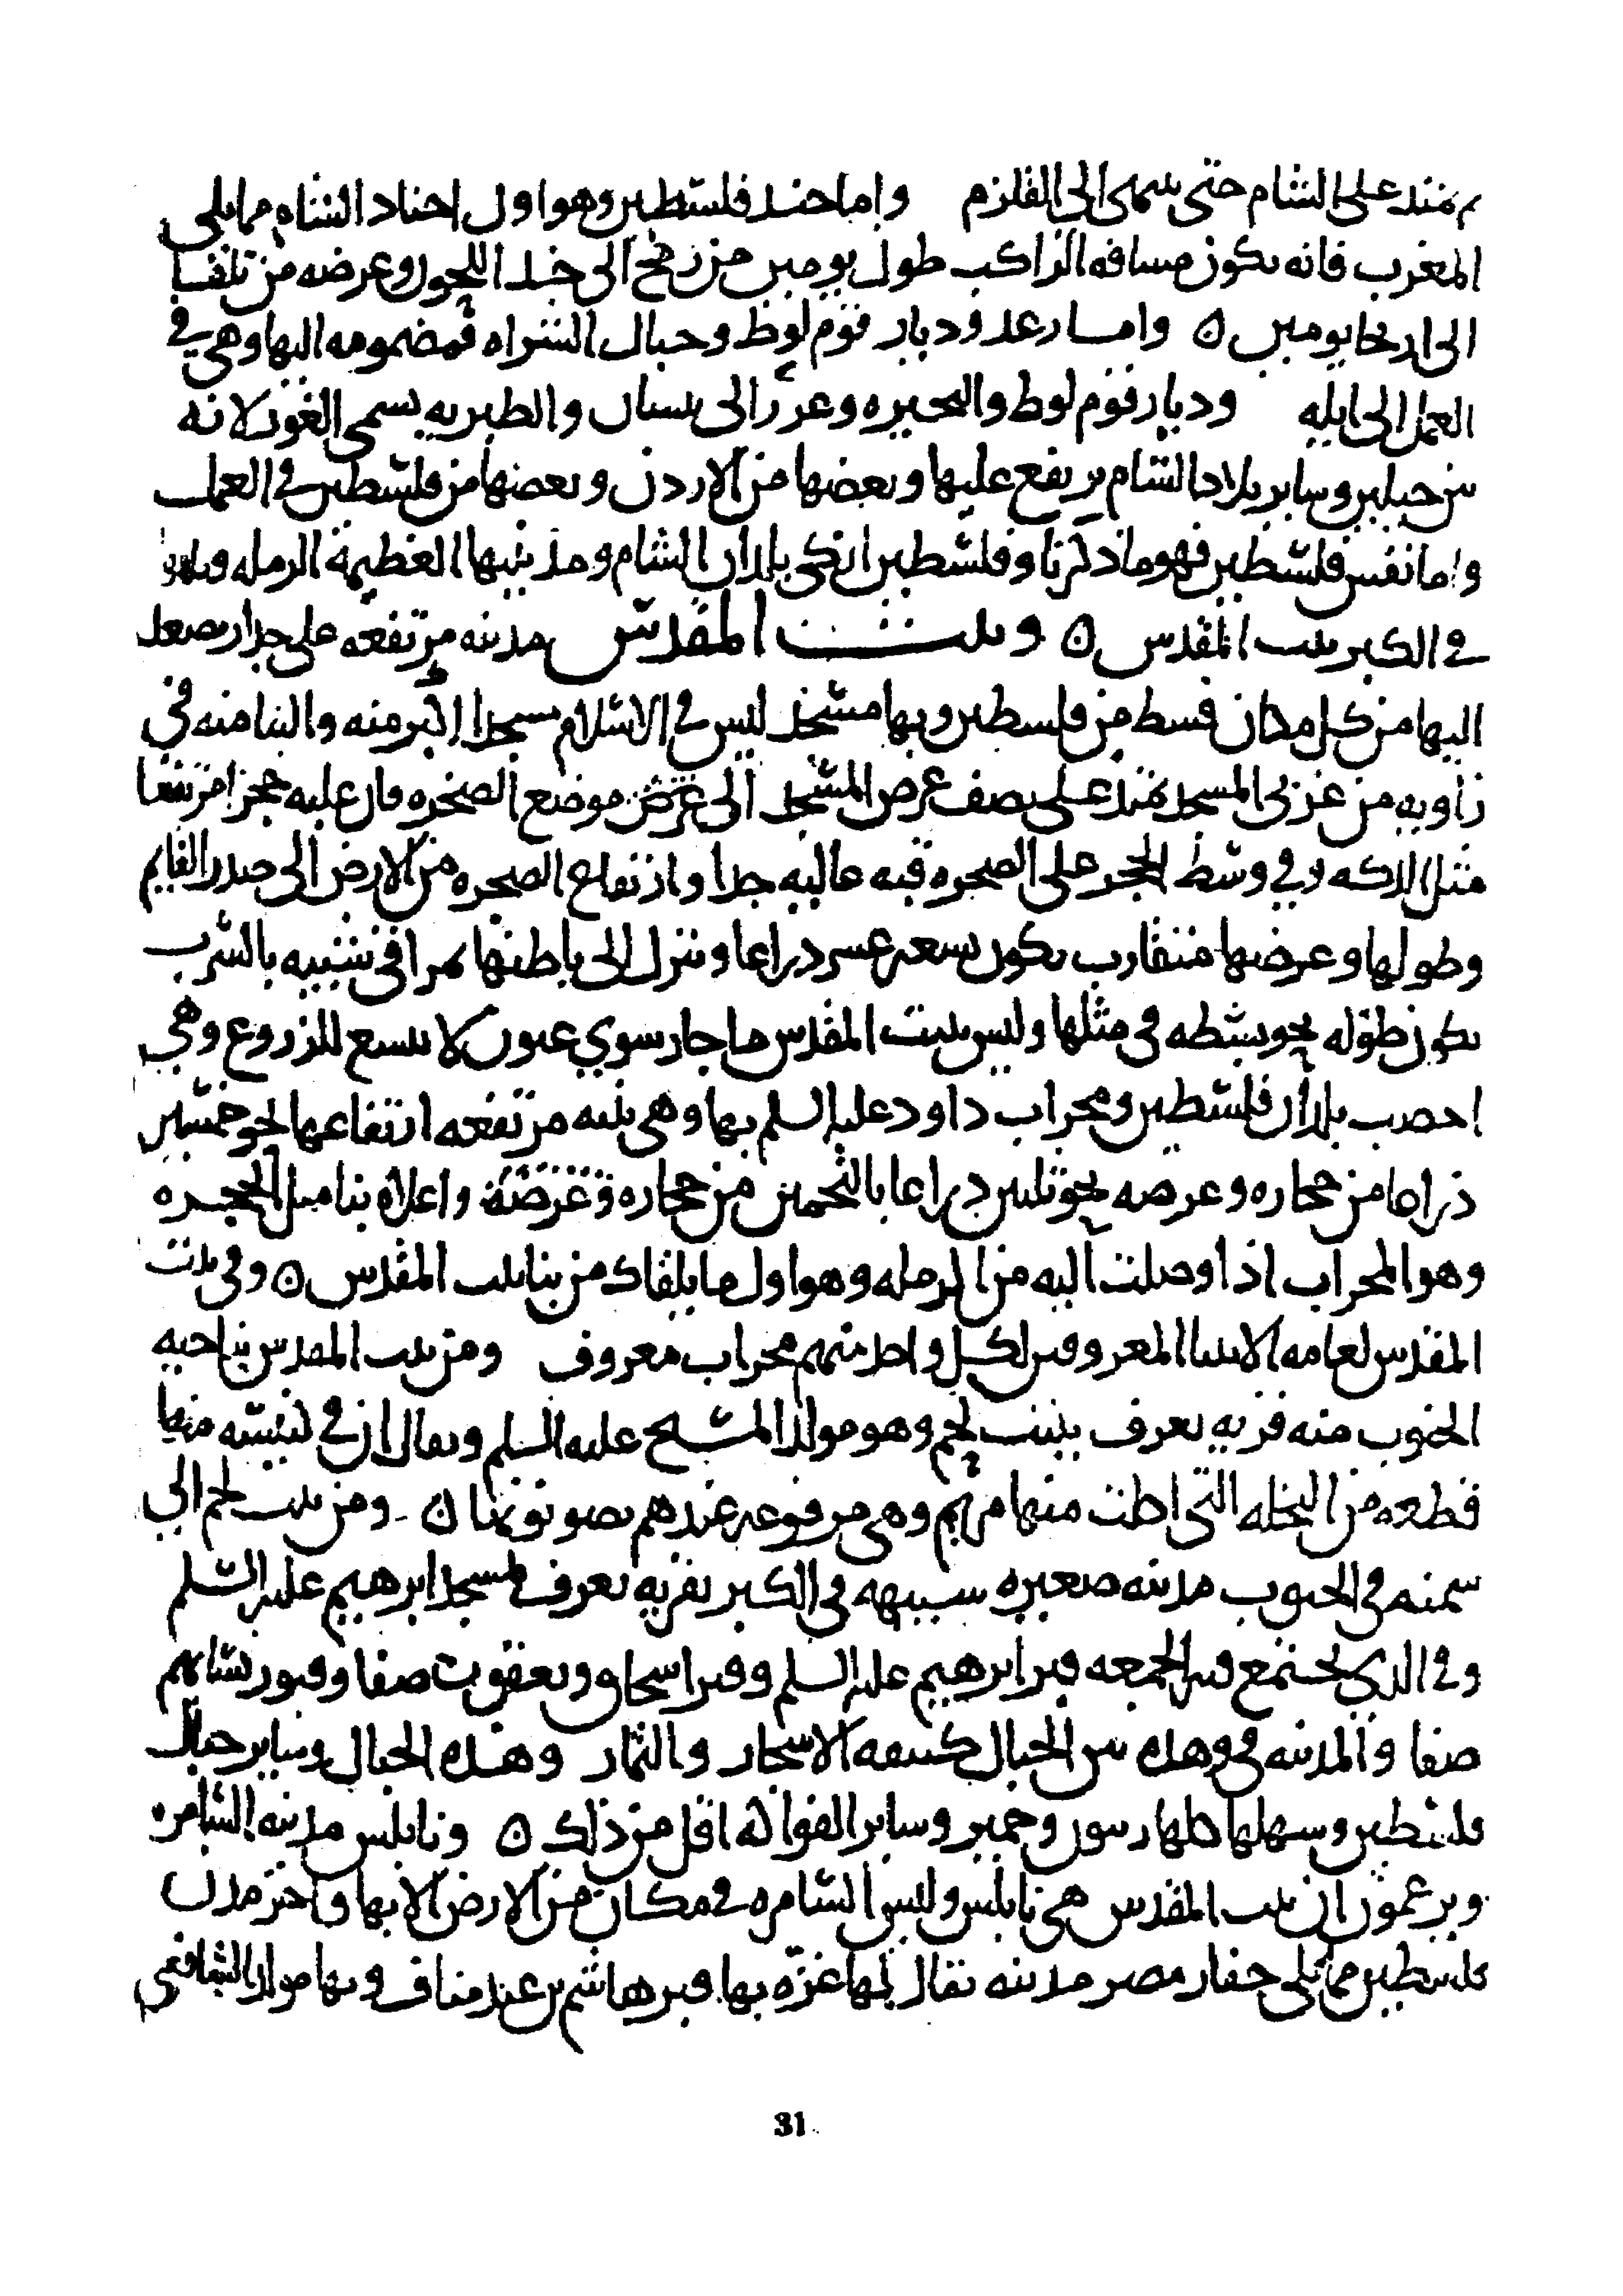 ثم يمتد على الشام حتى ينتهى الى القلزم واما جند فلسطين وهو اول اجناد الشام مما يلى
المغرب فانه يكون مسافه الراكب طول يومين من رفح الى حد اللجون وعرضه من يافا
الى اريحا يومين ٥ واما زغر وديار قوم لوط وجبال الشراه فمضمومه اليها وهى فى
العمل الى ايله وديار قوم لوط والبحيره وزغر الى بيسان والطبريه يسمى الغور لانه
بين جبلين وساير بلاد الشام يرتفع عليها وبعضها من الاردن وبعضها من فلسطين فى العمل
واما نفس فلسطين فهو ما ذكرنا وفلسطين ازكى بلدان الشام ومدينتها العظيمة الرمله
فى الكبر بيت المقدس ٥ وبيت المقدس مدينه مرتفعه على جبال يصعد
اليها من كل مكان قصد من فلسطين وبها مسجد ليس فى الاسلام مسجدا اكبر منه والبنا منه فى
زاويه من غربى المسجد يمتد على نصف عرض المسجد الى عرض موضع الصخره فان عليه حجرا مرتفعا
مثل الدكه وفى وسط الحجر على الصخره قبه عاليه جدا وارتفاع الصخره من الارض الى صدر القايم
وطولها وعرضها متقارب يكون بضعه عشر ذراعا وينزل الى باطنها بمراقى شبيه بالسرب
يكون طوله نحو بسطه فى مثلها وليس ببيت المقدس ما جار سوي عيون لا تتسع للزروع وهى
اخصب بلدان فلسطين ومحراب داود عليه السلم بها وهى بنيه مرتفعه ارتفاعها نحو خمسين
ذراعا من حجاره وعرضه نحو ثلثين ذراعا بالتخمين من حجاره وعرضة واعلاه بنا مثل الحجره
وهو المحراب اذا وصلت اليه من الرمله وهو اول ما يلقاك من بنا بيت المقدس ٥ وفى بيت
المقدس لعامه الانبيا المعروفين لكل واحد منهم محراب معروف ومن بيت المقدس بناحيه
الجنوب منه قريه تعرف ببيت لحم وهو مولد المسيح عليه السلم ويقال ان فى كنيسه منها
قطعه من النخله التى اكلت منها مريم وهى مرفوعه عندهم يصونونها ٥ ومن بيت لحم الي
سمته فى الجنوب مدينه صغيره شبيهه فى الكبر بقريه تعرف بمسجد ابرهيم عليه السلم
وفى الذي يجتمع فيه الجمعه قبر ابرهيم عليه السلم وقبر اسحاق ويعقوب صفا وقبور نسايهم
صفا والمدينه فى وهده بين الجبال كثيفه الاشجار والثمار وهذه الجبال وساير جبال
فلسطين وسهلها كلها زيتون وجميز وساير الفواكه اقل من ذلك ٥ ونابلس مدينه السامره
ويزعمون ان بيت المقدس هى نابلس وليس السامره فى مكان من الارض الا بها واخر مدن
فلسطين مما يلى جفار مصر مدينه يقال لها غزه بها قبر هاشم بن عبد مناف وبها مولد الشافعى
31